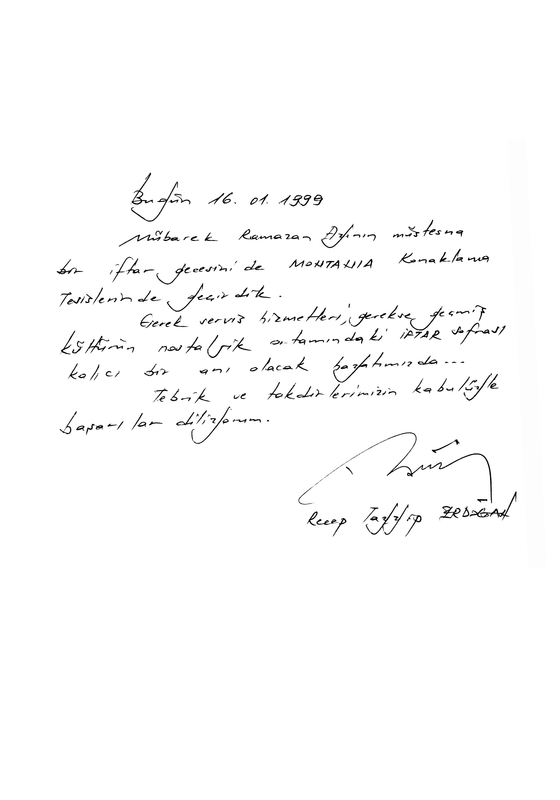 Bugün 16. 01. 1999
Mübarek Ramazan Ayının müstesna
bir iftar gecesini de MONTANIA Konaklama
Tesislerinde geçirdik.
Gerek servis hizmetleri, gerekse geçmiş
kültürün nostaljik ortamındaki iFTAR sofrası
kalıcı bir anı olacak hayatımızda...
Tebrik ve takdirlerimizin kabulüyle
başarılar diliyorum.
Recep Tayyip ERDOĞAN